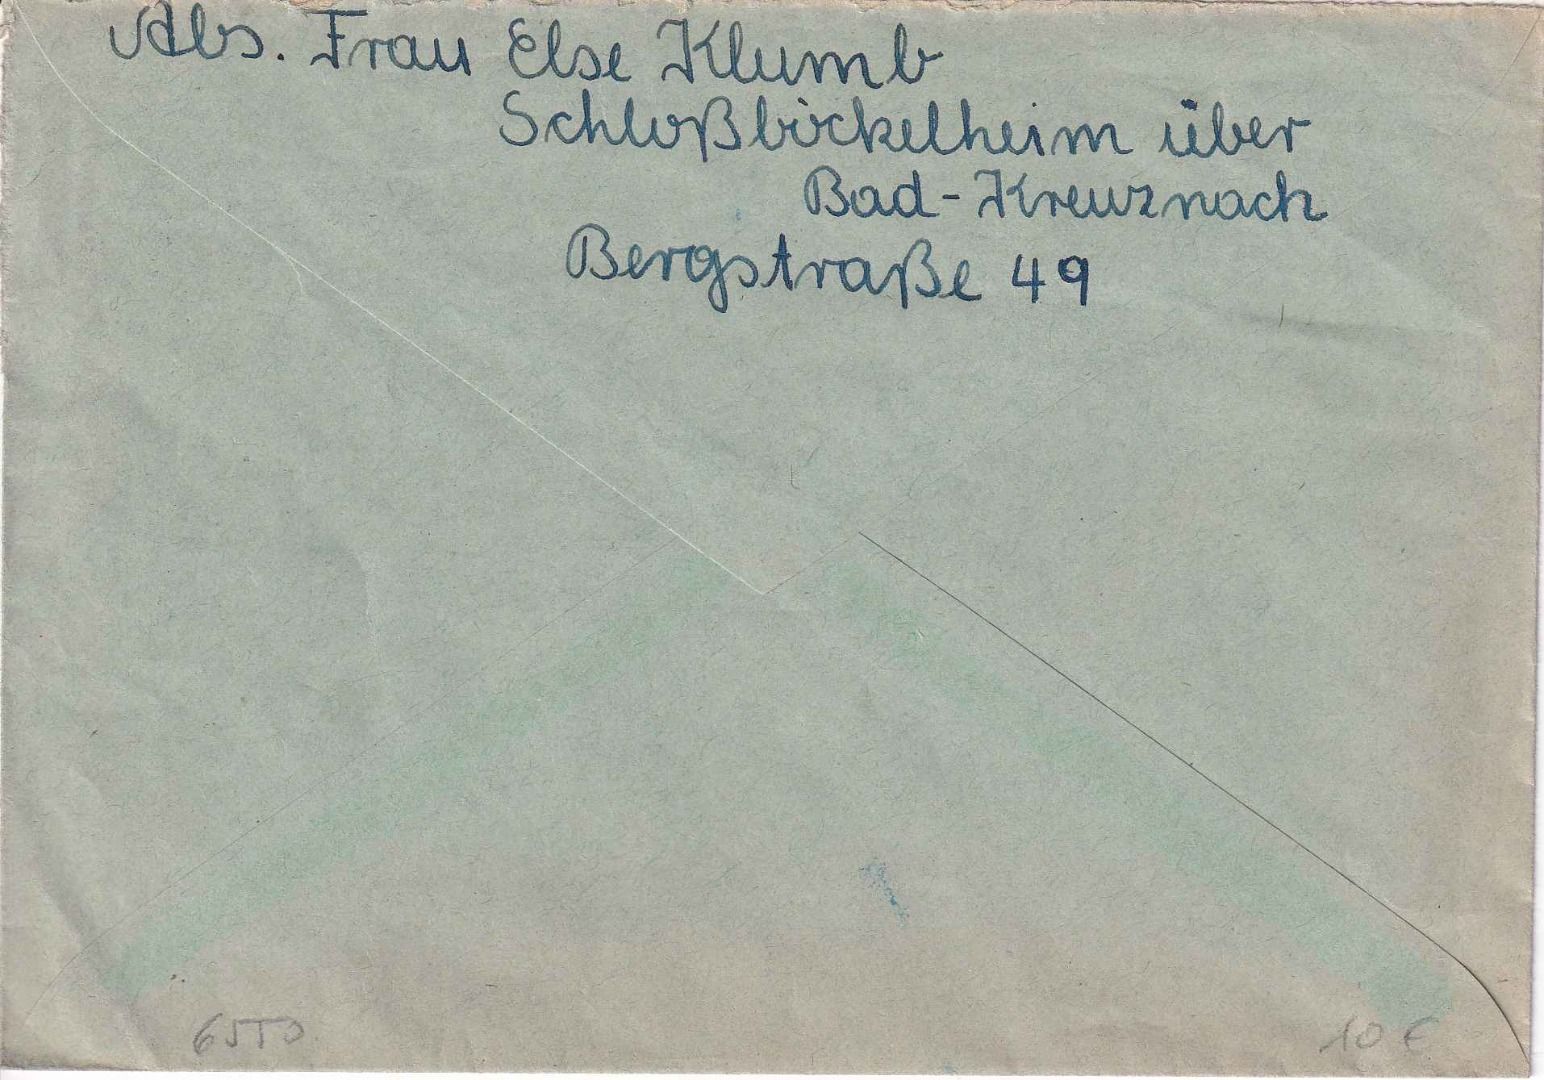 Abs. Frau Else Klumb
Schloßböckelheim über
Bad-Kreuznach
Bergstraße 49
10 €